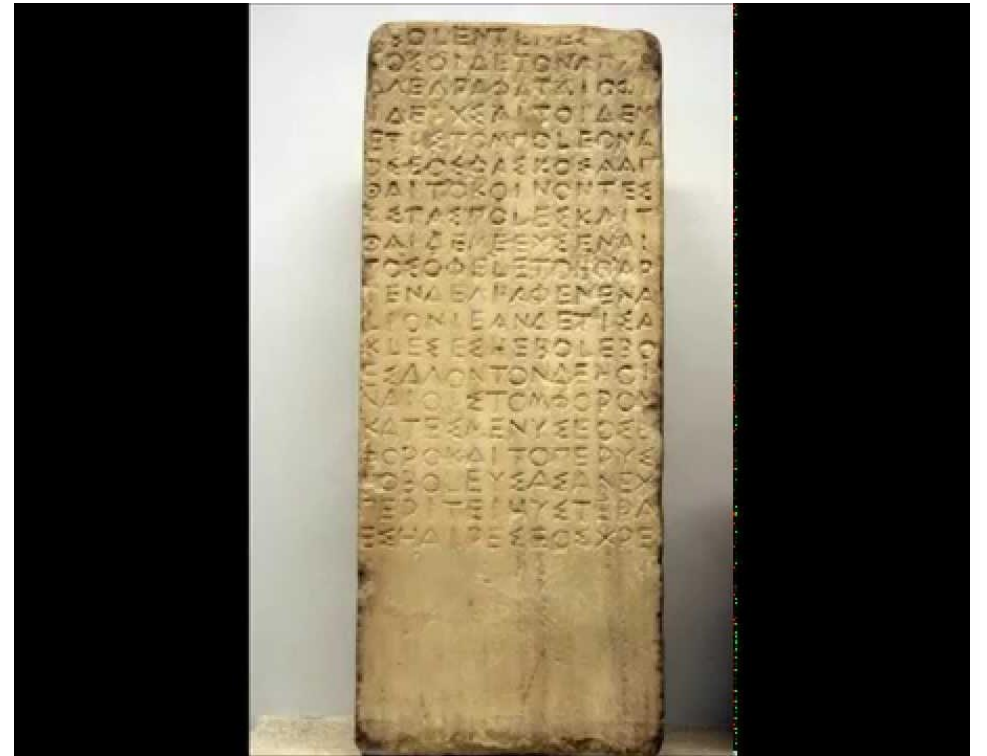 ΒΟLΕΝΤΕΜΕΣ
ΟΣΟΙΔΕΤΟΝΑΠΑ
ΛΕΛΡΑΦΑΤΑΙΟΣ
ΕΤΙΣΤΟΜΠΟLΕΟΝΑ
ΟΣΕΟΣΦΑΣΚΟΣΑΑΠ
ΘΑΙΤΟΚΟΙΝΟΝΤΕΣ
ΣΤΑΣΠΟLΕΣΚΑΙΤ
ΘΑΙΔΕΜΕΕΧΣΕΝΑΙ
ΤΟΣΟΦΕLΕΤΟΗΟΛΡ
ΤΕΝΔΕΛΡΑΦΕΝΕΝΑ
ΟΝΙΕΑΝΔΕΤΙΣΑ
ΚLΕΣΕΣΗΕΒΟLΕΒΟ
ΕΣΑΛΟΝΤΟΝΔΕΗΟΙ
ΝΑΙΟΙΣΤΟΜΦΟΡΟΝ
ΚΑΤΕΣΜΕΝΥΣΕΟΣΕ
ΦΟΡΟΚΑΙΤΟΠΕΡΥΣ
ΟΒΟLΕΥΣΑΣΑΝΕΧ
ΠΕΡΙΤΕΙΗΥΣΤΕΡΑ
ΕΣΗΑΙΡΕΣΕΟΣΧΡΕ